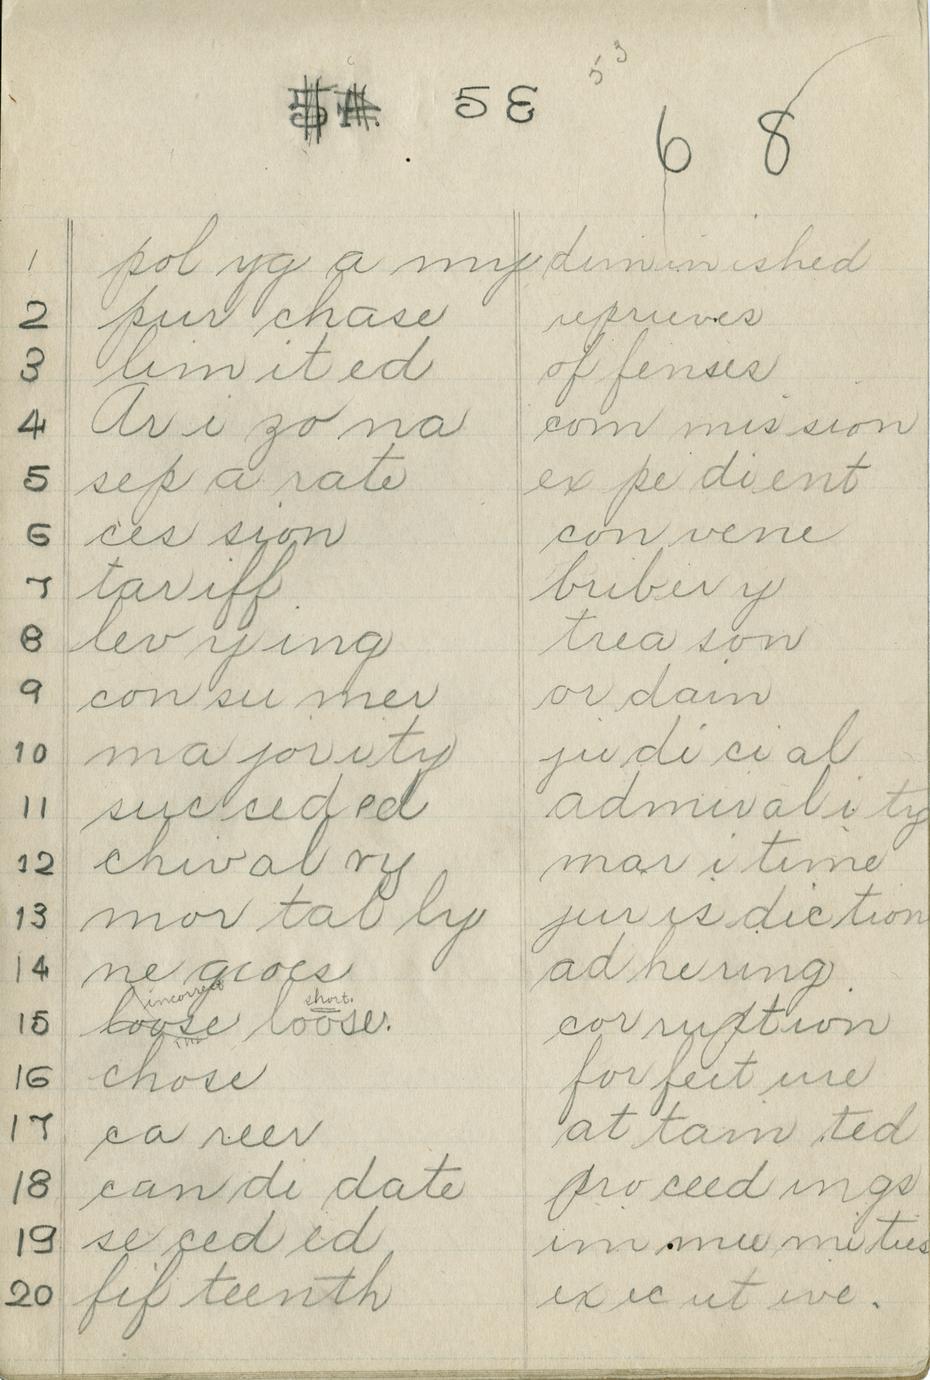 5 E 53
6 8
1 pol yg a my diminished
2 pur chase reprieves
3 lim it ed of fenses
4 Ar i zo na com mis sion
5 sep a rate ex pe di ent
6 ces sion con vene
7 tariff briber y
8 lev y ing trea son
9 con su mer or dain
10 ma jor ity ju di ci al
11 suc ced ed admiral i ty
12 chival ry mar i time
13 mor tal ly jur is dic tion
14 ne groes ad he ring
incorrect short.
15 loose loose. cor ruption
16 chose for feit ure
17 ca reer at tain ted
18 can di date pro ceed ings
19 se ced ed im mu ni ties
20 fif teenth ex ec ut ive.